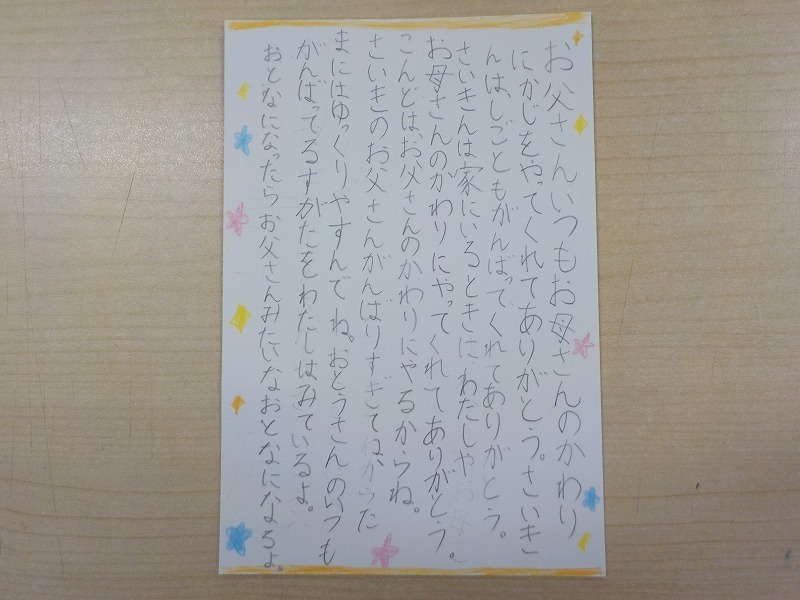 お父さんいつもお母さんのかわり
にかじをやってくれてありがとう。さいき
んは、しごともがんばってくれてありがとう。
さいきんは家にいるときに、わたしや
お母さんのかわりにやってくれてありがとう。
こんどは、お父さんのかわりにやるからね。
さいきのお父さんがんばりすぎてね、からた
まにはゆっくりやすんでね。おとうさんのいつも
がんばってるすがたをわたしはみているよ。
おとなになったらお父さんみたいなおとなになるよ。